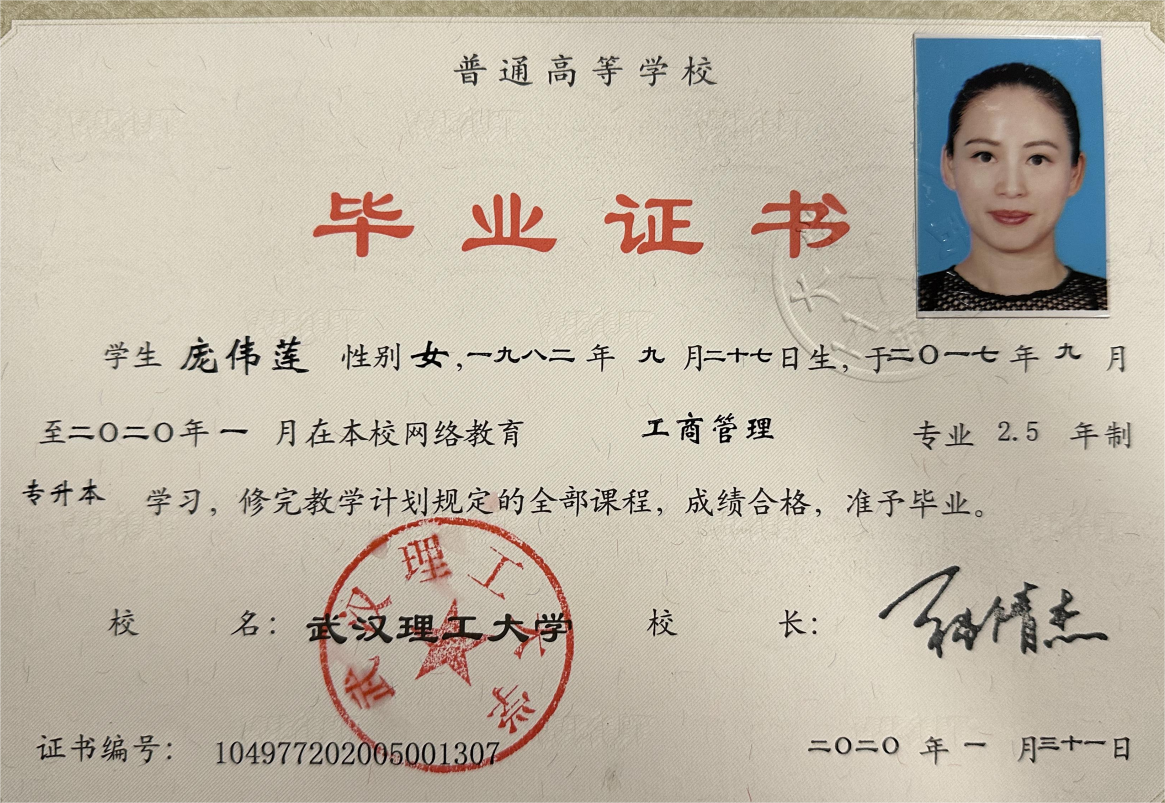 普通高等学校
毕业证书
学生 庞伟莲 性别 女，一九八二 年 九 月二十七日生，于二〇一七 年 九 月
至二〇二〇年 一 月在本校网络教育 工商管理 专业 2.5 年制
专升本 学习，修完教学计划规定的全部课程，成绩合格，准予毕业。
校 名： 武汉理工大学 校 长：
武汉理工大学
证书编号： 104977202005001307 二〇二〇 年 一 月三十一日